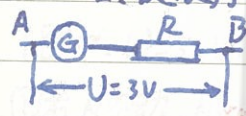 A G R B
U=3V